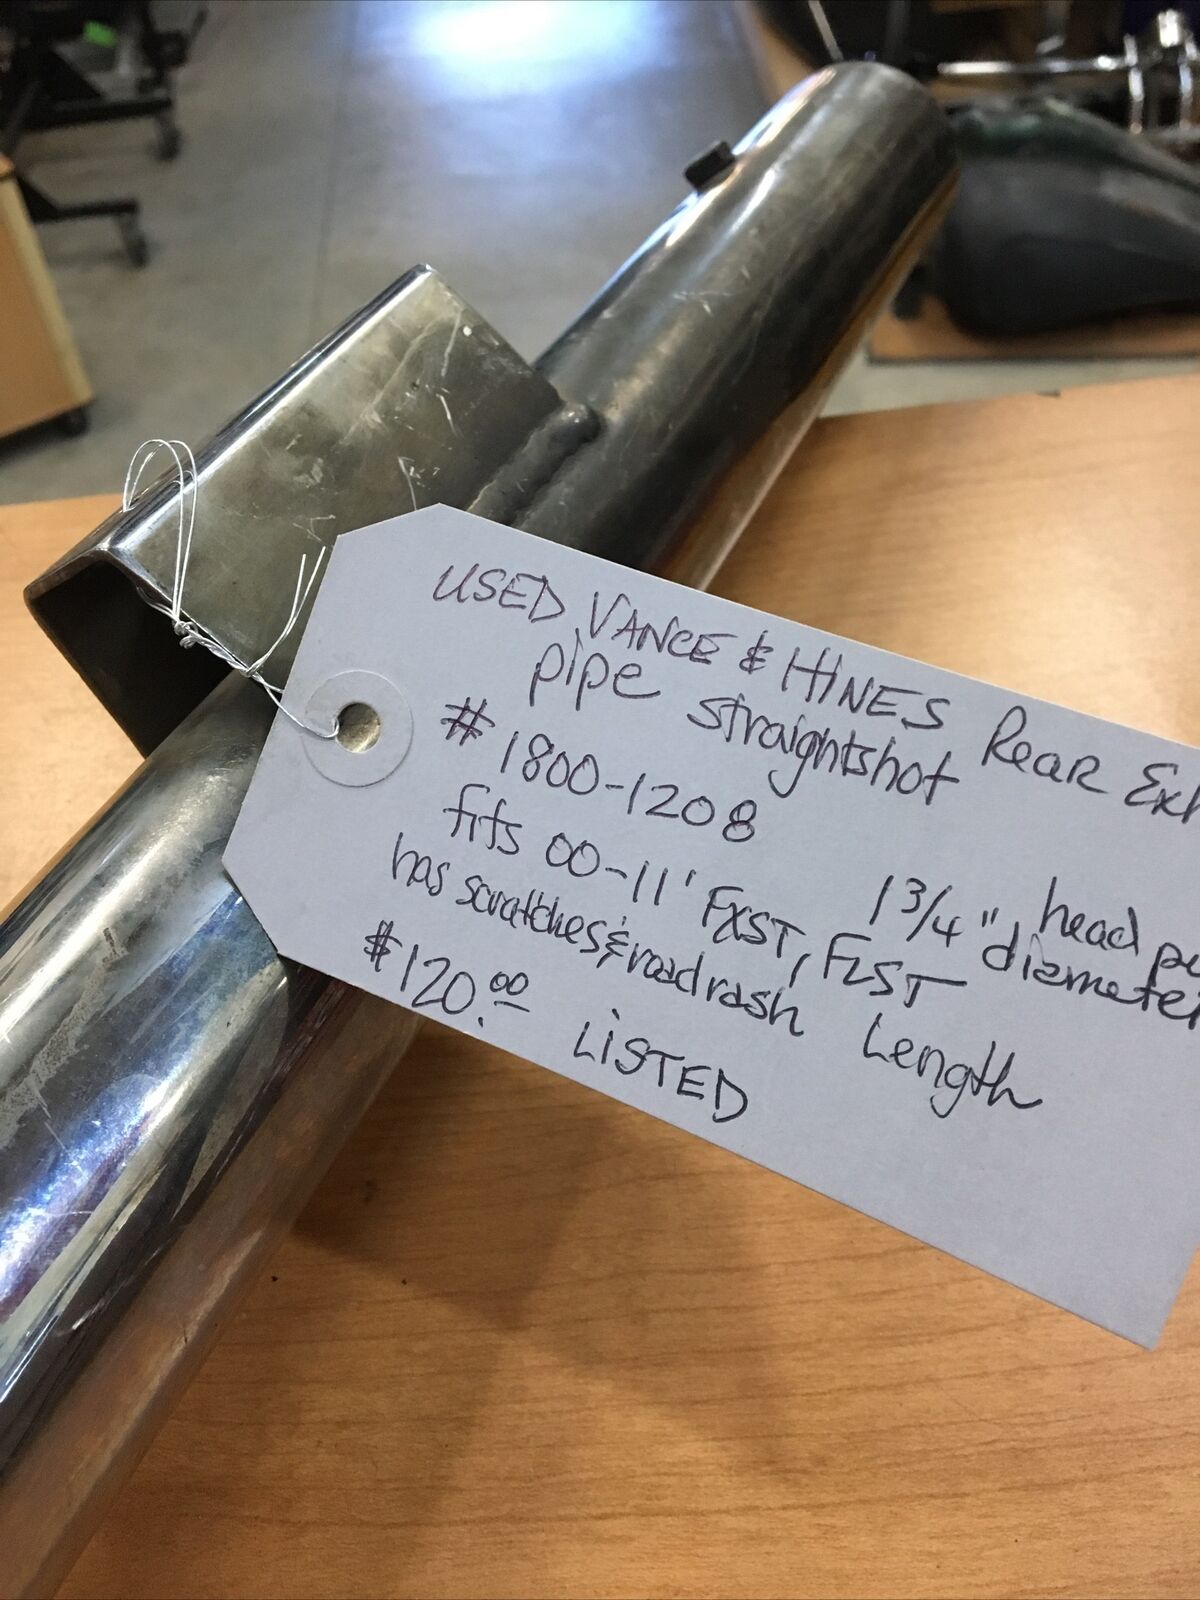 USED VANCE & HINES Rear Exh
pipe straightshot
# 1800-1208
1 3/4" head pi
diameter
fits 00-11' FXST, FLST
has scratches & road rash Length
$120.00 LiSTED